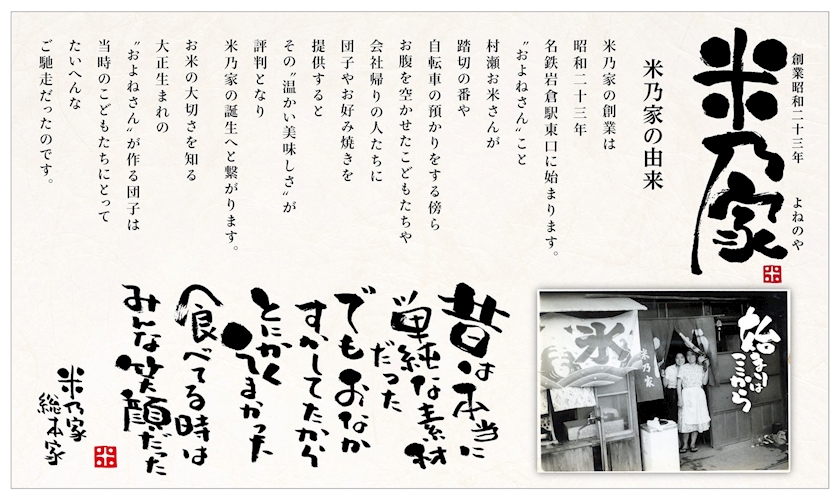 創業昭和二十三年 よねのや
米乃家
米
米乃家の由来
米乃家の創業は
昭和二十三年
名鉄岩倉駅東口に始まります。
〝およねさん〟こと
村瀬お米さんが
踏切の番や
自転車の預かりをする傍ら
お腹を空かせたこどもたちや
会社帰りの人たちに
団子やお好み焼きを
提供すると
その〝温かい美味しさ〟が
評判となり
米乃家の誕生へと繋がります。
お米の大切さを知る
大正生まれの
〝およねさん〟が作る団子は
当時のこどもたちにとって
たいへんな
ご馳走だったのです。
始まりは
ここから
氷
米乃家
昔は本当に
単純な素材
だった
でもおなか
すかしてたから
とにかく
うまかった
食べてる時は
みんな笑顔だった
米乃家
総本家
米